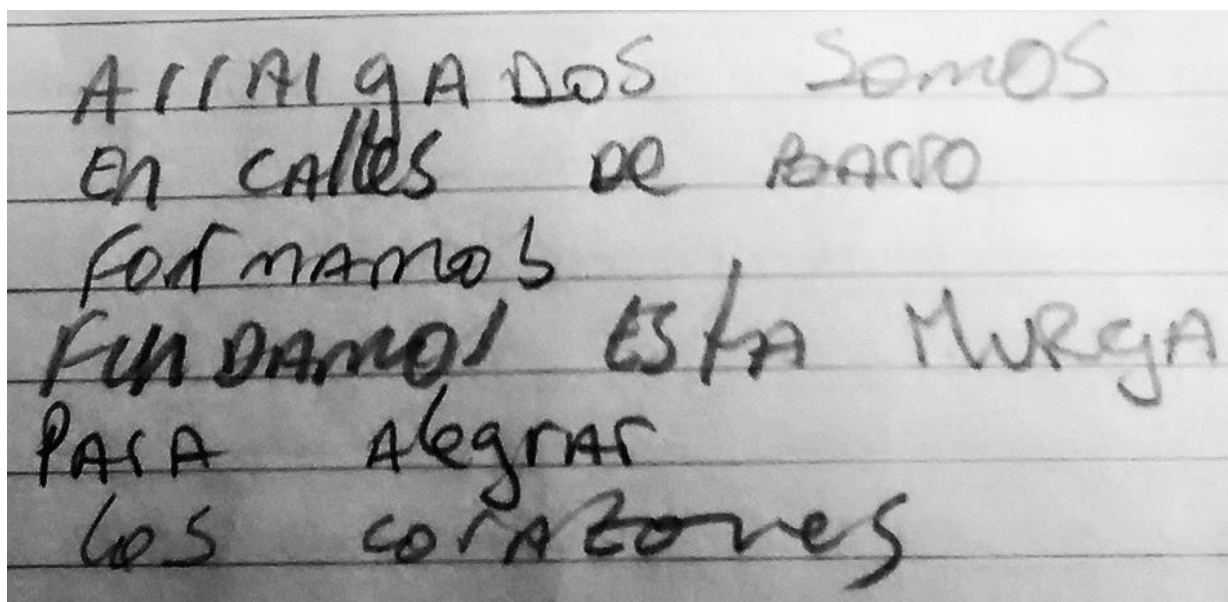 ARRAIGADOS SOMOS
En CAlles De BARRO
FORMAMOS
FUNDAMOS ESTA MURGA
PARA AlegrAR
los corAzones